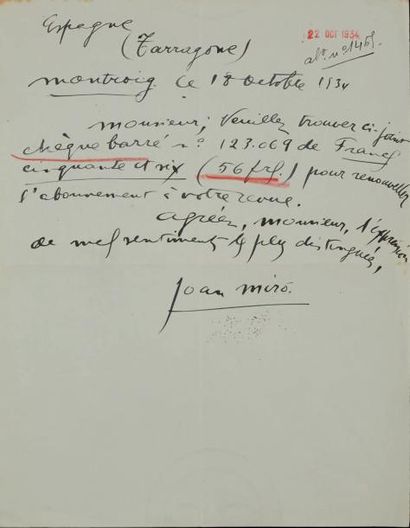 Espagne
22 OCT 1934
(Tarragone)
abt. n° 1458
montroig ce 18 octobre 1934
monsieur, Veuillez trouver ci-joint
chèque barré n° 123.069 de Francs
cinquante et six (56 frs.) pour renouveller
l'abonnement à votre revue.
agréez, monsieur, l'expression
de mes sentiments les plus distingués,
Joan miró.